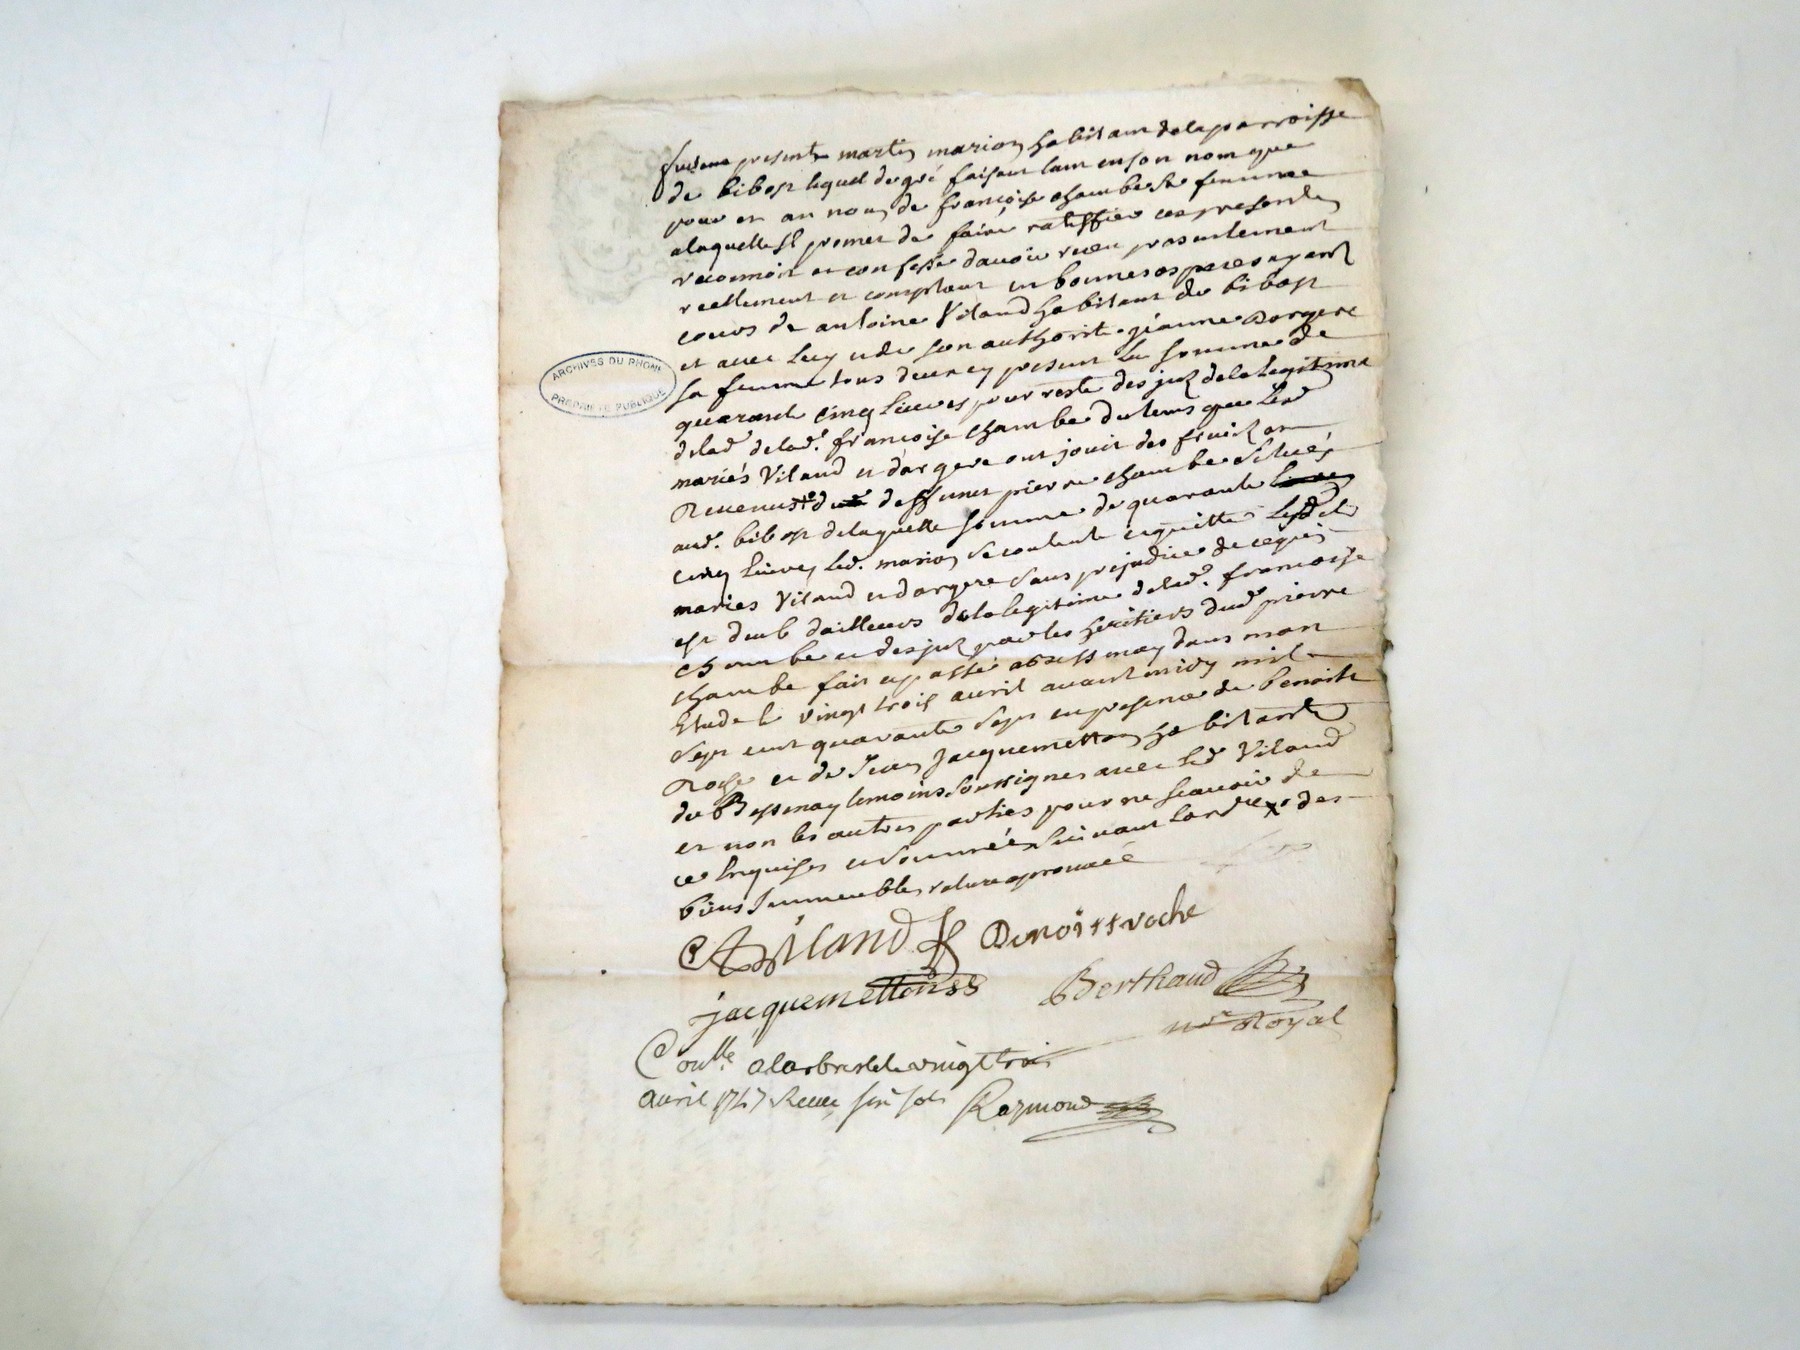 fut present martin marion habitant de la parroisse
de bibost lequel de gré faisant tant en son nom que
pour et au nom de francoise chambe sa femme
a laquelle Il promet de faire ratiffier ces presentes
reconnoit et confesse davoir receu presentement
reellement et comptant en bonnes especes ayant
cours de antoine Viland habitant de bibost
et avec luy et de son authorité jeanne dargere
sa femme tous deux cy present la somme de
quarante cinq livres pour reste des jnt de la legitime
de lad. de lad. francoise chambe du tems que lesd
mariés Viland et dargere ont jouit des fruits et
Revenus du deffunt pierre chambe situés
aud. bibost de laquelle somme de quarante livres
cinq livres led. marion se contente et quitte lesd
mariés Viland et dargere sans prejudice de ce qui
est deub dailleurs de la legitime de lad. francoise
chambe et des jnt par les heritiers dud pierre
chambe fait et passé a bessenay dans mon
Etude le vingt trois avril avant midy mil
sept cent quarante sept en presence de benoist
Roche et de Jean Jacquemetton habitants
de Bessenay temoins soussignes avec led Viland
et non les autres parties pour ne scavoir de
ce Enquises et sommées suivant lordce x des
biens Immeubles rature aprouvée
A Viland Benoist roche
jacquemetton Berthaud
nre Royal
Conlle a larbresle le vingt trois
avril 1747 Receu six sols Raymond
ARCHIVES DU RHONE
PROPRIETE PUBLIQUE